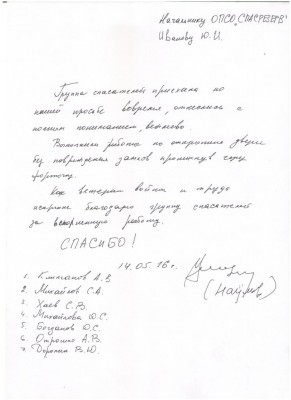 Начальнику ОПСО „СПАСРЕЗЕРВ"
Иванову Ю.И.
Группа спасателей приехала по
нашей просьбе вовремя, отнеслась с
полным пониманием, вежливо.
Выполнили работу по открыванию двери
без повреждения замков проникнув через
форточку.
Как ветеран войны и труда
искренне благодарю группу спасателей
за выполненную работу.
СПАСИБО!
14.05.16 г.
1. А.В.
2. Михайлов С.А.
3. Хаев С.В.
4. Михайлова Ю.С.
5. Богданов Ю.С.
6. А.В.
7. В.Ю.